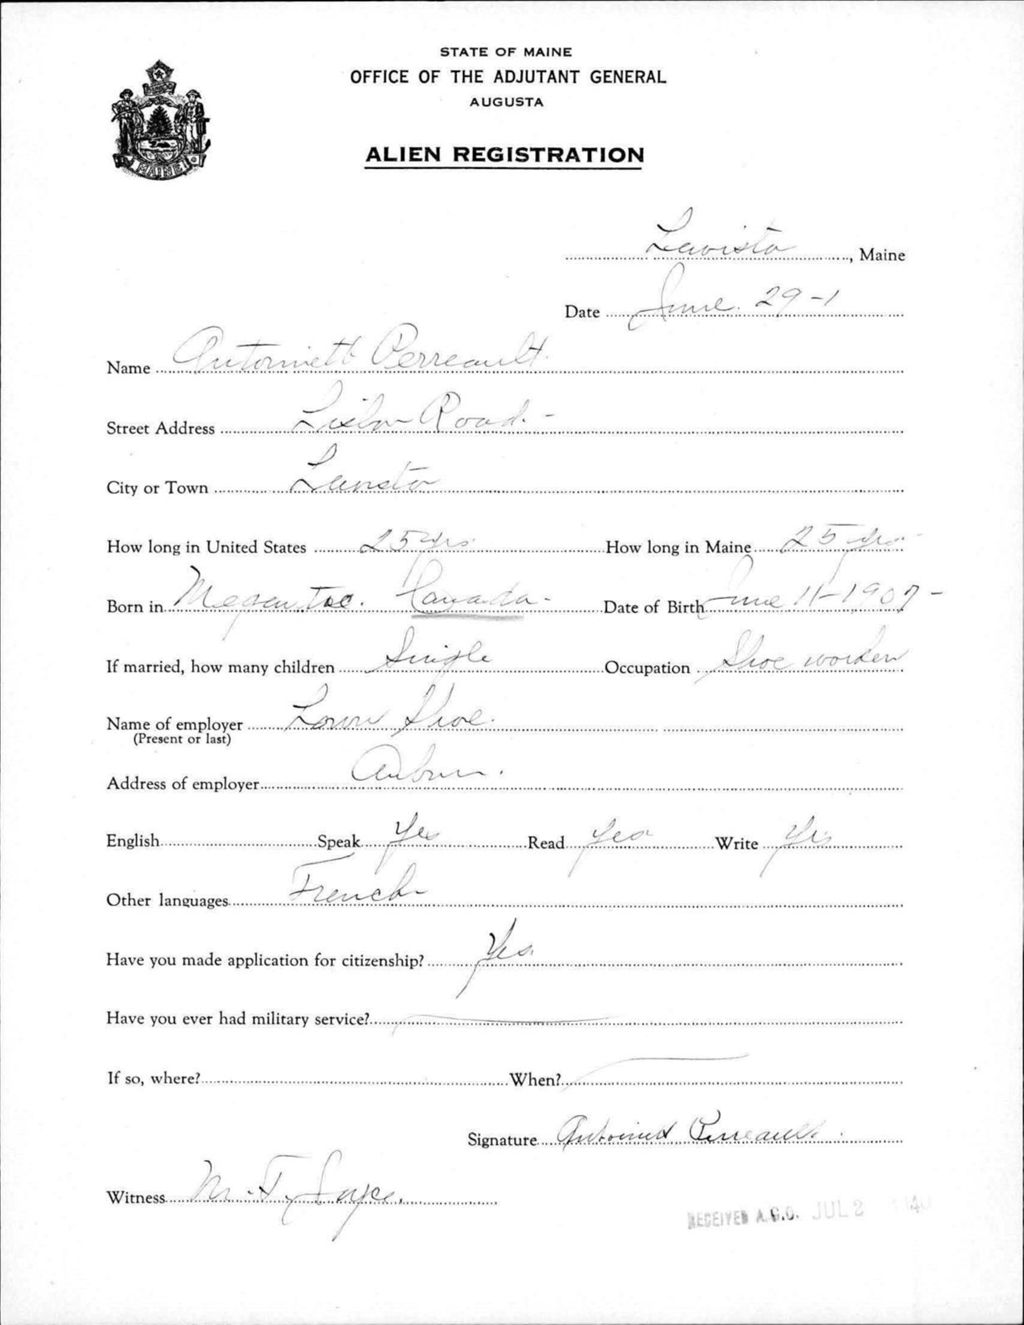 STATE OF MAINE
OFFICE OF THE ADJUTANT GENERAL
AUGUSTA
ALIEN REGISTRATION
MAINE
Lewisto, Maine
Date June 29-1
Name Antoinett Perreault
Street Address Lisbon Road -
City or Town Lewisto
How long in United States 25 yrs How long in Maine 25 yrs
Born in Megantic. Canada - Date of Birth June 11-1907 -
If married, how many children Single Occupation Shoe worker
Name of employer Lown Shoe.
(Present or last)
Address of employer Auburn.
English Speak Yes Read Yes Write Yes
Other languages French
Have you made application for citizenship? Yes
Have you ever had military service?
If so, where? When?
Signature Antoinett Perreault.
Witness M. T.
RECEIVED A.G.O. JUL 2 40